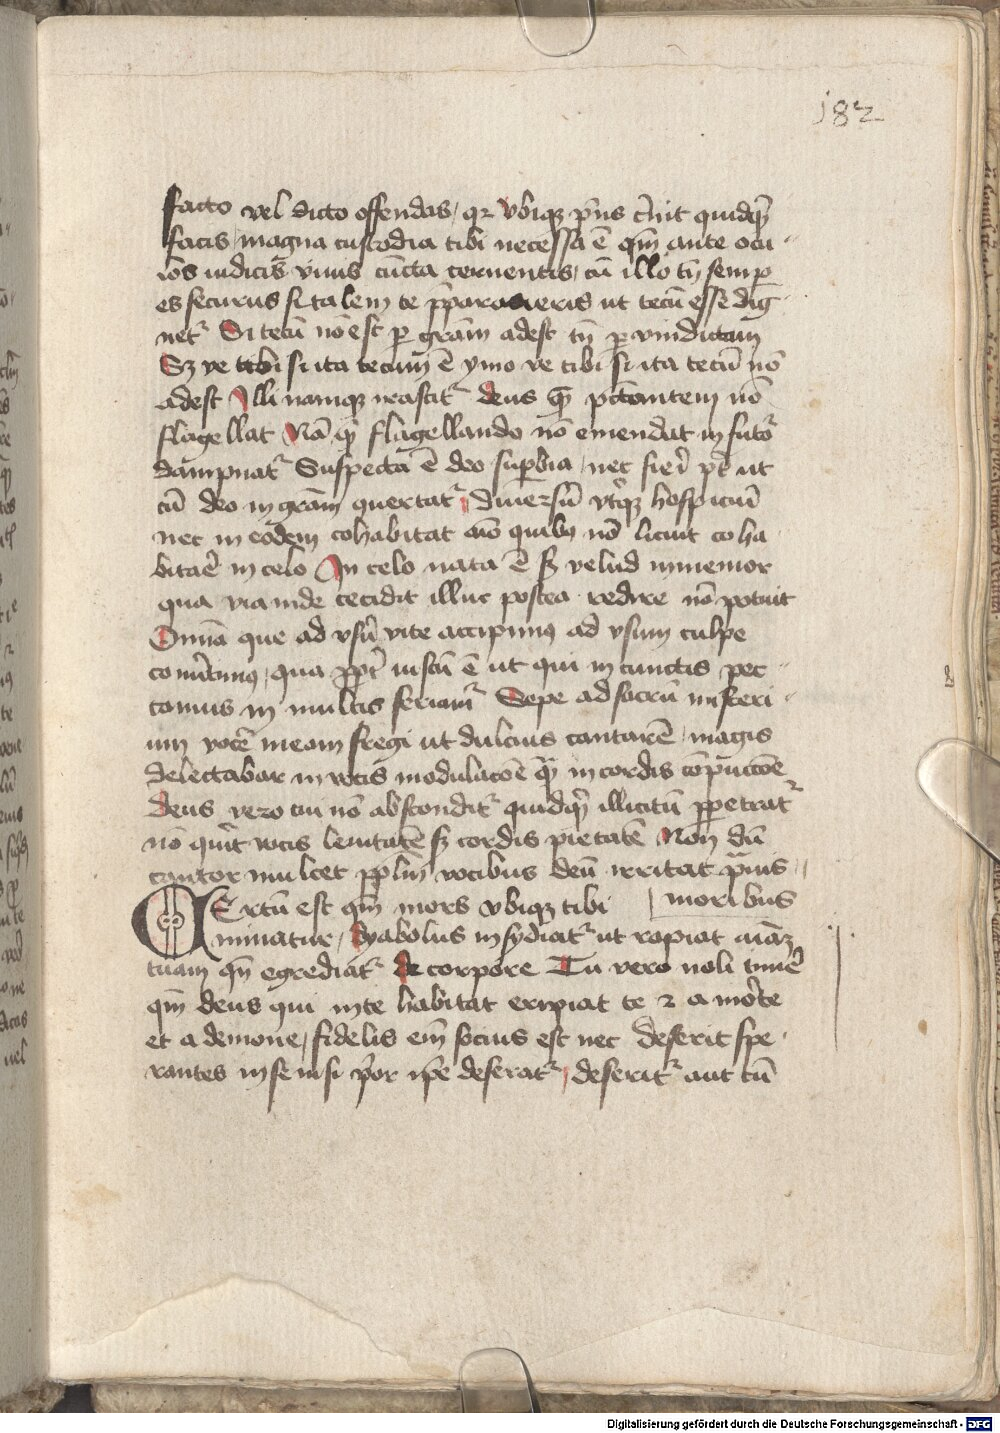 182
facto vel dicto offendas / qr vbiqz p̃ns c̃nit quidq̃
facis / magna custodia tibi necessa ẽ qm̃ ante ocu
los iudicis viuis cũcta cernentis / cũ illo tñ semp
es securus si talem te p̃paraueris ut tecũ esse dig
net᷑ Si tecũ nõ est p grãm adest tñ p vindictam
Sz ve tibi si ita tecum ẽ ymo ve tibi si ita tecũ nõ
adest Illi namqz irascit᷑ deus quẽ pctantem nõ
flagellat Nã quẽ flagellando nõ emendat in futo᷑
dampnat᷑ Suspecta ẽ deo supbia / nec fieri pt ut
cũ deo in grãm queruat᷑ / diuersũ vtqz hospiciũ
nec in eodem cohabitat aĩo quibꝯ nõ licuit coha
bitaẽ in celo In celo nata ẽ sz velud inmemor
qua via inde cecidit illuc postea redire nõ potuit
Omnia que ad vsũ vite accipimꝯ ad vsum culpe
cõmittimꝯ / qua ppt iustũ ẽ ut qui in cunctis pec
camus in multis feriamᷣ Sepe ad sacrũ misteri
um vocẽ meam fregi ut dulcius cantarẽ / magis
delectabar in vocis modulacõe q̃ in cordis cõpũccõe
deus vero cui nõ abscondit᷑ quidq̃ illicitũ ppetrat᷑
nõ querit vocis lenitatẽ sz cordis pietatẽ Non dũ
cantor mulcet pplm̃ vocibus deũ irritat prauis
CErtũ est qm̃ mors vbiqz tibi moribus
minatur / dyabolus insydiat᷑ ut rapiat aĩaz
tuam qñ egrediat᷑ de corpore Tu vero noli timẽ
qm̃ deus qui in te habitat eripiat te 2 a morte
et a demone / fidelis em̃ socius est nec deserit spe
rantes in se nisi p̃or ip̃e deserat᷑ / deserit᷑ aut cũ
Digitalisierung gefördert durch die Deutsche Forschungsgemeinschaft - DFG